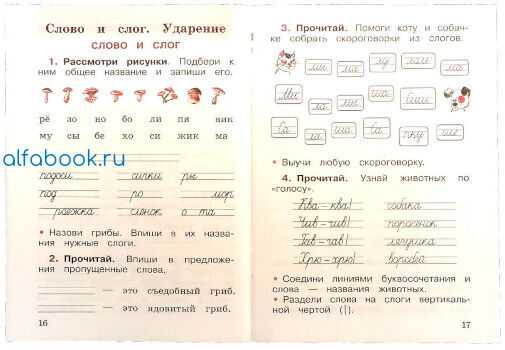 Слово и слог. Ударение
СЛОВО И СЛОГ
1. Рассмотри рисунки. Подбери к
ним общее название и запиши его.
рё ао но бо ли пя вик
му сы бе хо си жик ма
alfabook.ru
подоси синки ры
под ро мор
роежка о та
• Назови грибы. Впиши в их назва-
ния нужные слоги.
2. Прочитай. Впиши в предложе-
ния пропущенные слова.
— это съедобный гриб.
— это ядовитый гриб.
16
3. Прочитай. Помоги коту и собач-
ке собрать скороговорки из слогов.
ши
Ми ла ми ша
Са ла ша Са пку ши
• Выучи любую скороговорку.
4. Прочитай. Узнай животных по
«голосу».
Ква - ква! собака
Чив - чив! поросёнок
Гав - гав! лягушка
Хрю - хрю! воробей
• Соедини линиями буквосочетания и
слова — названия животных.
• Раздели слова на слоги вертикаль-
ной чертой (|).
17